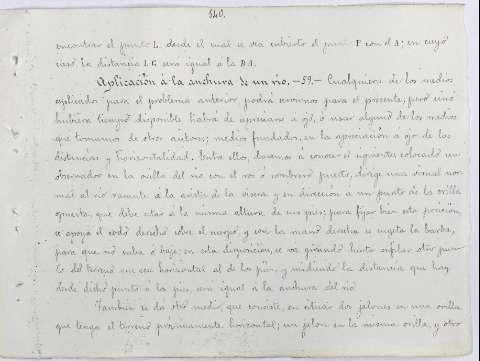 540.
encontrar el punto L desde el cual se vea cubierto el punto F con el A; en cuyo
caso, la distancia LG sera igual á la BA.
Aplicación á la anchura de un rio. — 59. — Cualquiera de los medios
esplicados para el problema anterior, podrá servirnos para el presente; pero si no
hubiera tiempo disponible habrá de apreciarse á ojo, ó usar alguno de los medios
que tomamos de otros autores; medios fundados, en la apreciación á ojo de las
distancias y horizontalidad. Entre ellos, daremos á conocer el siguiente: colocado un
observador en la orilla del rio con el ros ó sombrero puesto, dirige una visual nor-
mal al rio rasante á la arista de la visera y en dirección á un punto de la orilla
opuesta, que debe estar á la misma altura de sus pies; para fijar bien esta posición,
se apoya el codo derecho sobre el cuerpo, y con la mano derecha se sujeta la barba,
para que no suba ó baje: en esta disposición, se va girando hasta enfilar otro pun-
to del terreno en su horizontal al de los pies, y midiendo la distancia que hay
desde dicho punto á los pies, será igual á la anchura del rio.
Tambien se da otro medio, que consiste, en situar dos jalones en una orilla
que tenga el terreno próximamente horizontal; un jalon en la misma orilla, y otro